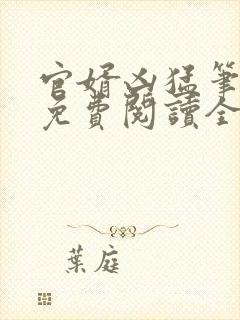 官婿凶猛筆
免費閱讀全
葉庭